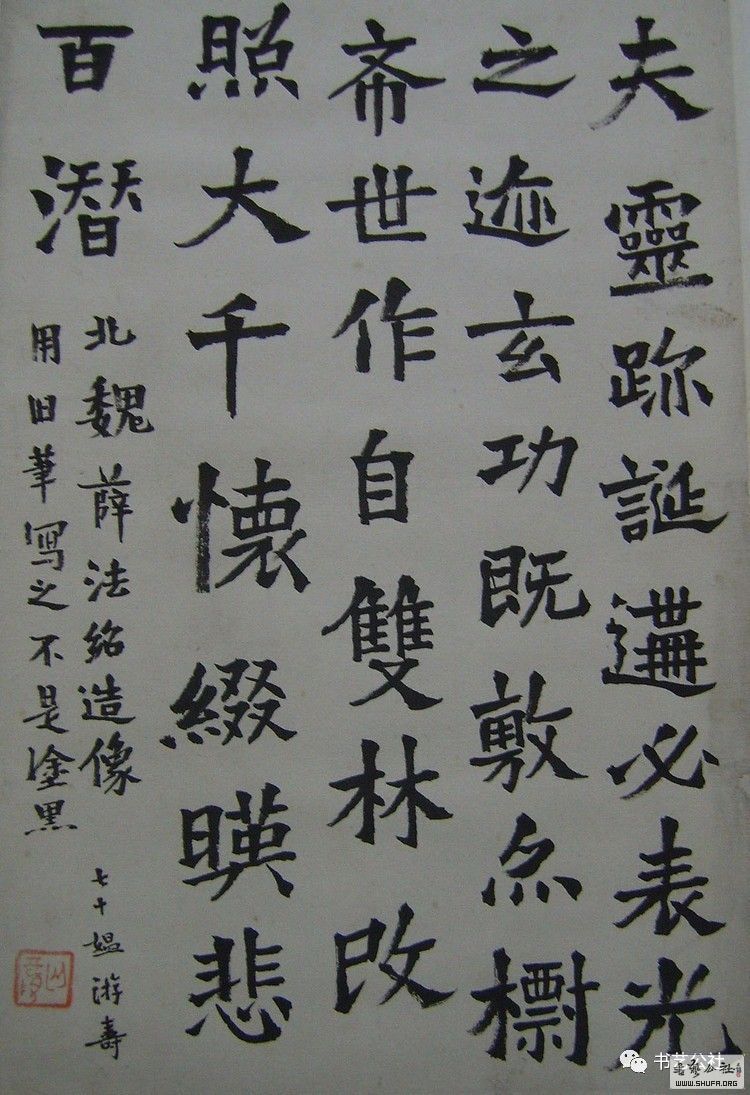 夫靈跡誕遘必表光
之迹玄功既敷亦標
希世作自雙林改
照大千懷綴暎悲
百潛
北魏薛法紹造像
用旧筆写之不是塗黑
七十媪游壽
书艺公社
WWW.SHUFA.ORG